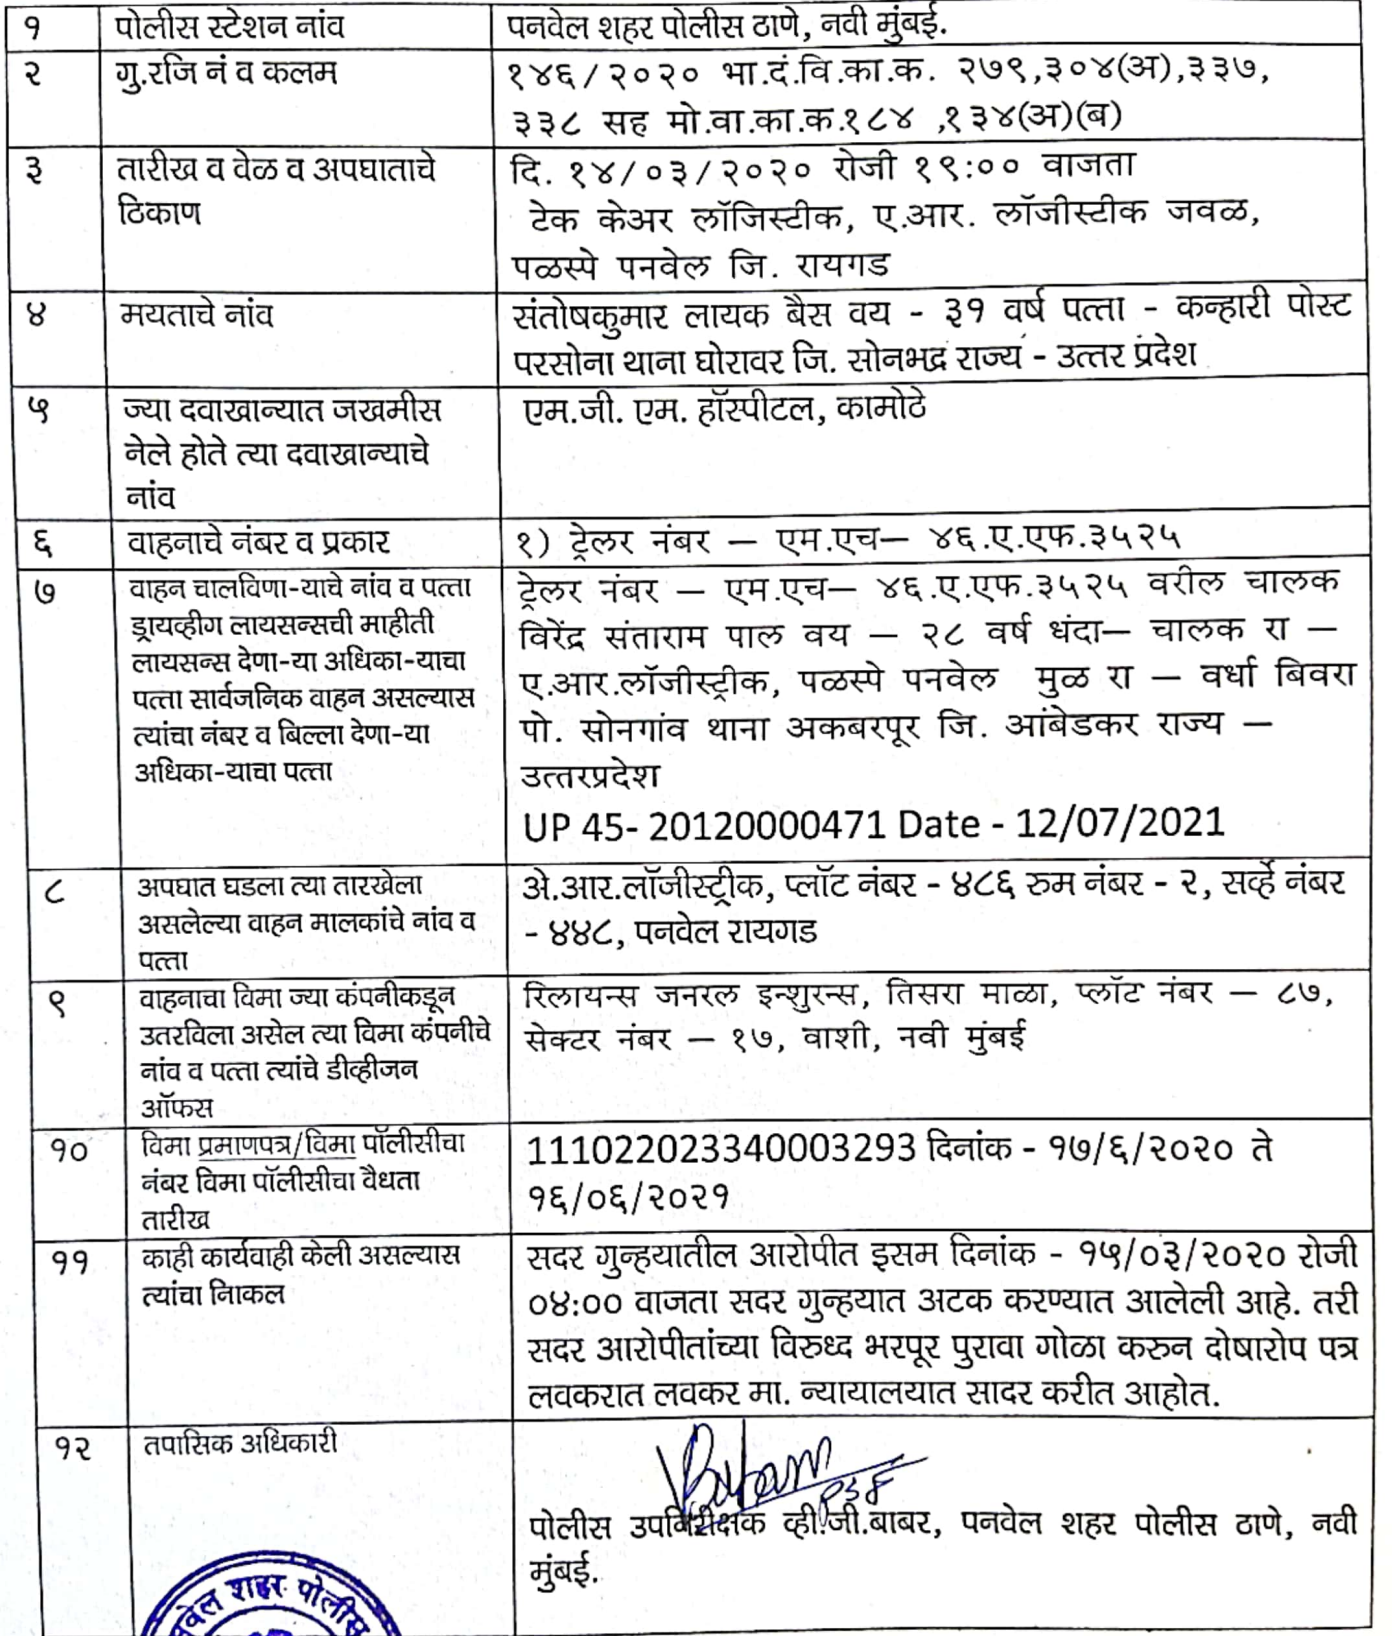 १ पोलीस स्टेशन नांव पनवेल शहर पोलीस ठाणे, नवी मुंबई.
२ गु.रजि नं व कलम १४६/२०२० भा.दं.वि.का.क. २७९,३०४(अ),३३७,
३३८ सह मो.वा.का.क.१८४ ,१३४(अ)(ब)
३ तारीख व वेळ व अपघाताचे
ठिकाण
दि. १४/०३/२०२० रोजी १९:०० वाजता
टेक केअर लॉजिस्टीक, ए.आर. लॉजीस्टीक जवळ,
पळस्पे पनवेल जि. रायगड
४ मयताचे नांव संतोषकुमार लायक बैस वय - ३१ वर्ष पत्ता - कन्हारी पोस्ट
परसोना थाना घोरावर जि. सोनभद्र राज्य - उत्तर प्रदेश
५ ज्या दवाखान्यात जखमीस
नेले होते त्या दवाखान्याचे
नांव
एम.जी. एम. हॉस्पीटल, कामोठे
६ वाहनाचे नंबर व प्रकार १) ट्रेलर नंबर — एम.एच— ४६.ए.एफ.३५२५
७ वाहन चालविणा-याचे नांव व पत्ता
ड्रायव्हीग लायसन्सची माहीती
लायसन्स देणा-या अधिका-याचा
पत्ता सार्वजनिक वाहन असल्यास
त्यांचा नंबर व बिल्ला देणा-या
अधिका-याचा पत्ता
ट्रेलर नंबर — एम.एच— ४६.ए.एफ.३५२५ वरील चालक
विरेंद्र संताराम पाल वय — २८ वर्ष धंदा— चालक रा —
ए.आर.लॉजीस्ट्रीक, पळस्पे पनवेल मुळ रा — वर्धा बिवरा
पो. सोनगांव थाना अकबरपूर जि. आंबेडकर राज्य —
उत्तरप्रदेश
UP 45- 20120000471 Date - 12/07/2021
८ अपघात घडला त्या तारखेला
असलेल्या वाहन मालकांचे नांव व
पत्ता
अे.आर.लॉजीस्ट्रीक, प्लॉट नंबर - ४८६ रुम नंबर - २, सर्व्हे नंबर
- ४४८, पनवेल रायगड
९ वाहनाचा विमा ज्या कंपनीकडून
उतरविला असेल त्या विमा कंपनीचे
नांव व पत्ता त्यांचे डीव्हीजन
ऑफस
रिलायन्स जनरल इन्शुरन्स, तिसरा माळा, प्लॉट नंबर — ८७,
सेक्टर नंबर — १७, वाशी, नवी मुंबई
१० विमा प्रमाणपत्र/विमा पॉलीसीचा
नंबर विमा पॉलीसीचा वैधता
तारीख
111022023340003293 दिनांक - १७/६/२०२० ते
१६/०६/२०२१
११ काही कार्यवाही केली असल्यास
त्यांचा निाकल
सदर गुन्हयातील आरोपीत इसम दिनांक - १५/०३/२०२० रोजी
०४:०० वाजता सदर गुन्हयात अटक करण्यात आलेली आहे. तरी
सदर आरोपीतांच्या विरुध्द भरपूर पुरावा गोळा करुन दोषारोप पत्र
लवकरात लवकर मा. न्यायालयात सादर करीत आहोत.
१२ तपासिक अधिकारी
पोलीस उपनिरीक्षक व्ही.जी.बाबर, पनवेल शहर पोलीस ठाणे, नवी
मुंबई.
शहर पोलीस